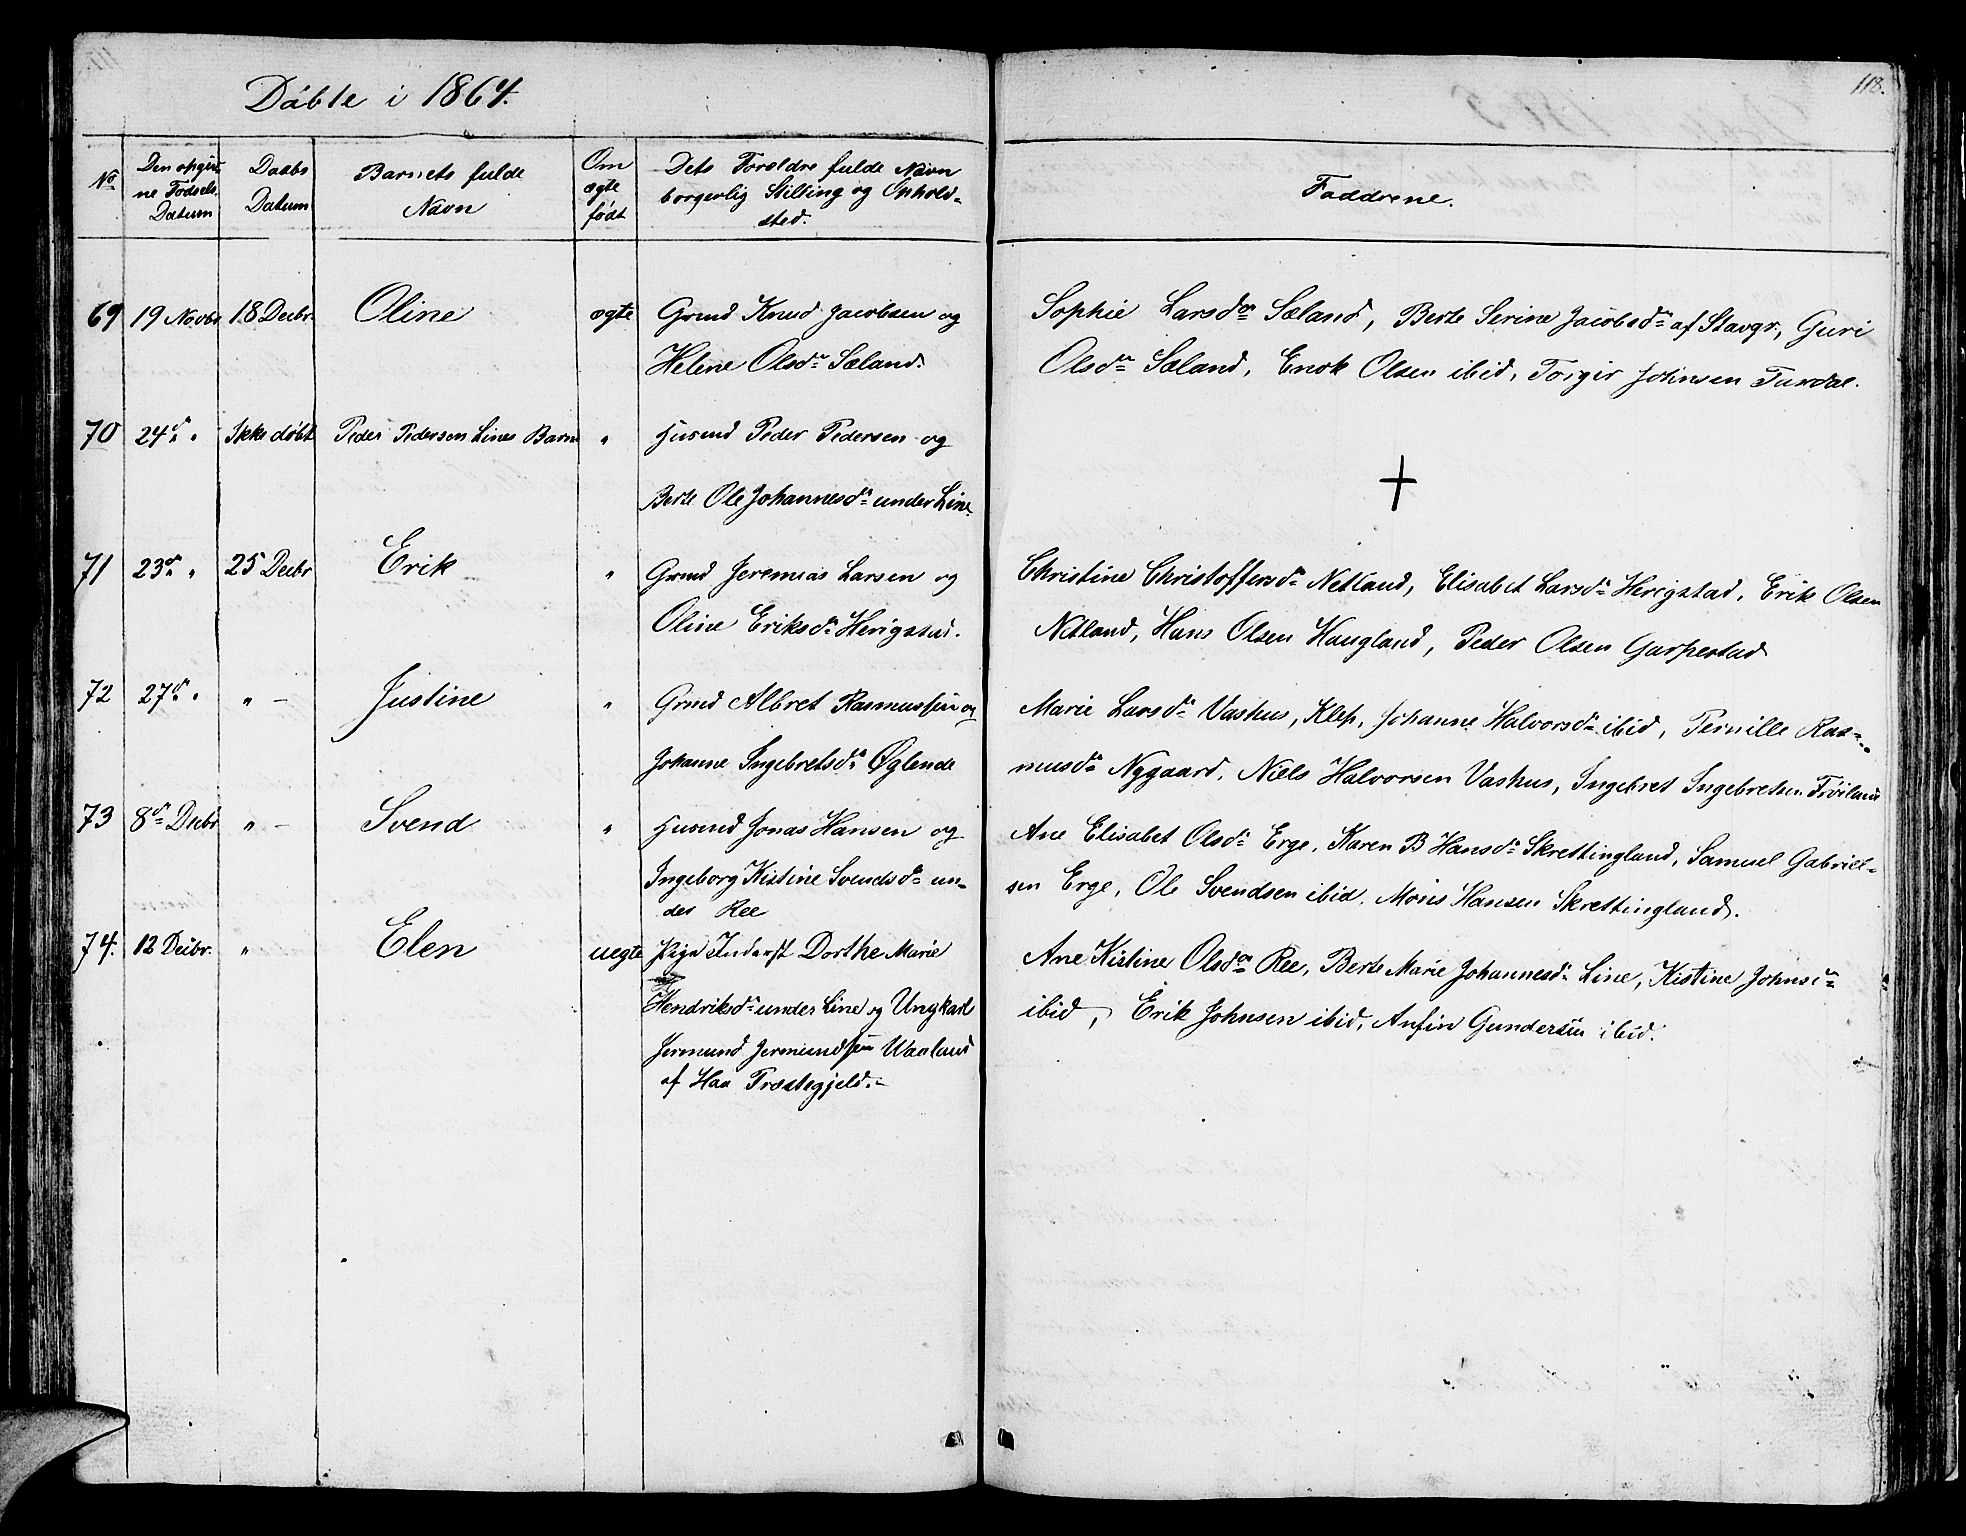 Döbte i 1864.
118.
No
Den opgiv-
ne Fødsels
Datum
Daabs
Datum
Barnets fulde
Navn
Om
ægte
født
Dets Forældre fulde Navn
borgerlig Stilling og Ophold-
sted.
Fadderne.
69 19 Novbr 18 Decbr. Oline ægte Grmd Knud Jacobsen og
Helene Olsdr Sæland.
Sophie Larsdr Sæland, Berte Serine Jacobsdr af Stavgr, Guri
Olsdr Sæland, Enok Olsen ibid, Torgir Johnsen Tunröe.
70 24de " Ikke döbt Peder Pedersen Lines Barn " Husmd Peder Pedersen og
Berte Ole Johannesdr under Line.
+
71 23de " 25 Decbr Erik " Grmd Jeremias Larsen og
Oline Eriksdr Herigstad.
Christine Christoffersdr Netland, Elisabet Larsdr Herigstad, Erik Olsen
Netland, Hans Olsen Haugland, Peder Olsen Garpestad
72 27de " " — Justine " Grmd Albret Rasmussen og
Johanne Ingebretsdr Øglende
Marie Larsdr Vashus, Klep, Johanne Halvorsdr ibid, Pernille Ras-
musdr Nygaard, Niels Halvorsen Vashus, Ingebret Ingebretsen Fröiland
73 8de Decbr " — Svend " Husmd Jonas Hansen og
Ingeborg Kistine Svendsdr un-
der Ree
Ane Elisabet Olsdr Erge, Karen B Hansdr Skrettingland, Samuel Gabriel-
sen Erge, Ole Svendsen ibid, Mons Hansen Skrettingland.
74. 12 Decbr. " Elen uegte Pige Inderst Dorthe Marie
Hendriksdr under Line og Ungkarl
Jermund Jermundsen Waaland
af Haa Præstegjeld.-
Ane Kistine Olsdr Ree, Berte Marie Johannesdr Line, Kistine Johnsdr
ibid, Erik Johnsen ibid, Anfin Gundersen ibid.